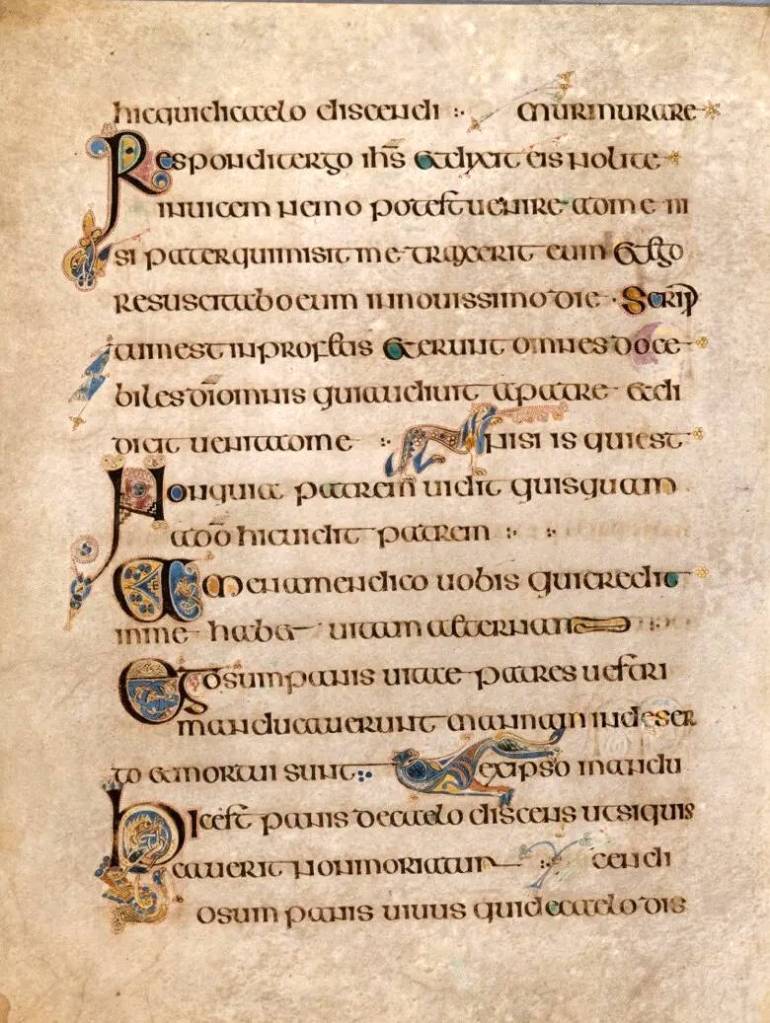 hic qui di caelo discendi :· murmurare
Respondit ergo ihs et dixit eis nolite
inuicem nemo potest uenire ad me ni
si pater qui misit me traxerit eum et ego
resuscitabo eum in nouissimo die · Scrip
tum est in profetis et erunt omnes doce
biles di omnis qui audiuit a patre et di
dicit uenit ad me :· nisi is qui est
Non quia patrem uidit quisquam
a do hic uidit patrem :· :·
Amen amen dico uobis qui credit
in me habet uitam aeternam
Ego sum panis uitae patres uestri
manducauerunt manna in deser
to et mortui sunt :· ex ipso mandu
Hic est panis de caelo discens ut si quis
cauerit non moriatur :· cendi
Ego sum panis uiuus qui de caelo dis